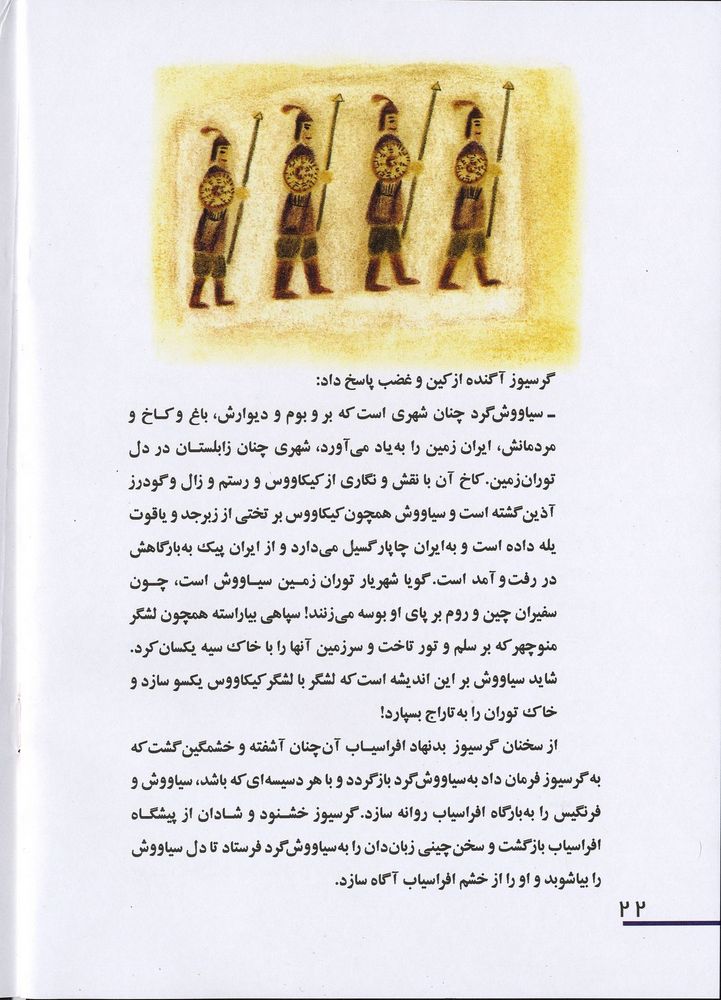 گرسیوز آگنده از کین و غضب پاسخ داد:
ـ سیاووش‌گرد چنان شهری است که بر و بوم و دیوارش، باغ و کاخ و
مردمانش، ایران زمین را به‌یاد می‌آورد، شهری چنان زابلستان در دل
توران‌زمین. کاخ آن با نقش و نگاری از کیکاووس و رستم و زال و گودرز
آذین گشته است و سیاووش همچون کیکاووس بر تختی از زبرجد و یاقوت
یله داده است و به‌ایران چاپار گسیل می‌دارد و از ایران پیک به‌بارگاهش
در رفت و آمد است. گویا شهریار توران زمین سیاووش است، چون
سفیران چین و روم بر پای او بوسه می‌زنند! سپاهی بیاراسته همچون لشگر
منوچهر که بر سلم و تور تاخت و سرزمین آنها را با خاک سیه یکسان کرد.
شاید سیاووش بر این اندیشه است که لشگر با لشگر کیکاووس یکسو سازد و
خاک توران را به تاراج بسپارد!
از سخنان گرسیوز بدنهاد افراسیاب آن‌چنان آشفته و خشمگین گشت که
به گرسیوز فرمان داد به‌سیاووش‌گرد بازگردد و با هر دسیسه‌ای که باشد، سیاووش و
فرنگیس را به‌بارگاه افراسیاب روانه سازد. گرسیوز خشنود و شادان از پیشگاه
افراسیاب بازگشت و سخن‌چینی زبان‌دان را به‌سیاووش‌گرد فرستاد تا دل سیاووش
را بیاشوبد و او را از خشم افراسیاب آگاه سازد.
۲۲